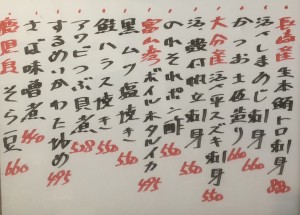 長崎産 生本鮪トロ刺身 880
活〆しまあじ刺身 660
かつお土佐造り 660
大分産 活〆平スズキ刺身 550
活〆殻付帆立刺身
のれそれポン酢 550
富山湾 ボイルホタルイカ 495
黒ムツ塩焼き 550
鮭ハラス焼き 550
アワビつぶ貝煮 528
するめいかわた炒め 495
さば味噌煮 440
鹿児島 そら豆 660